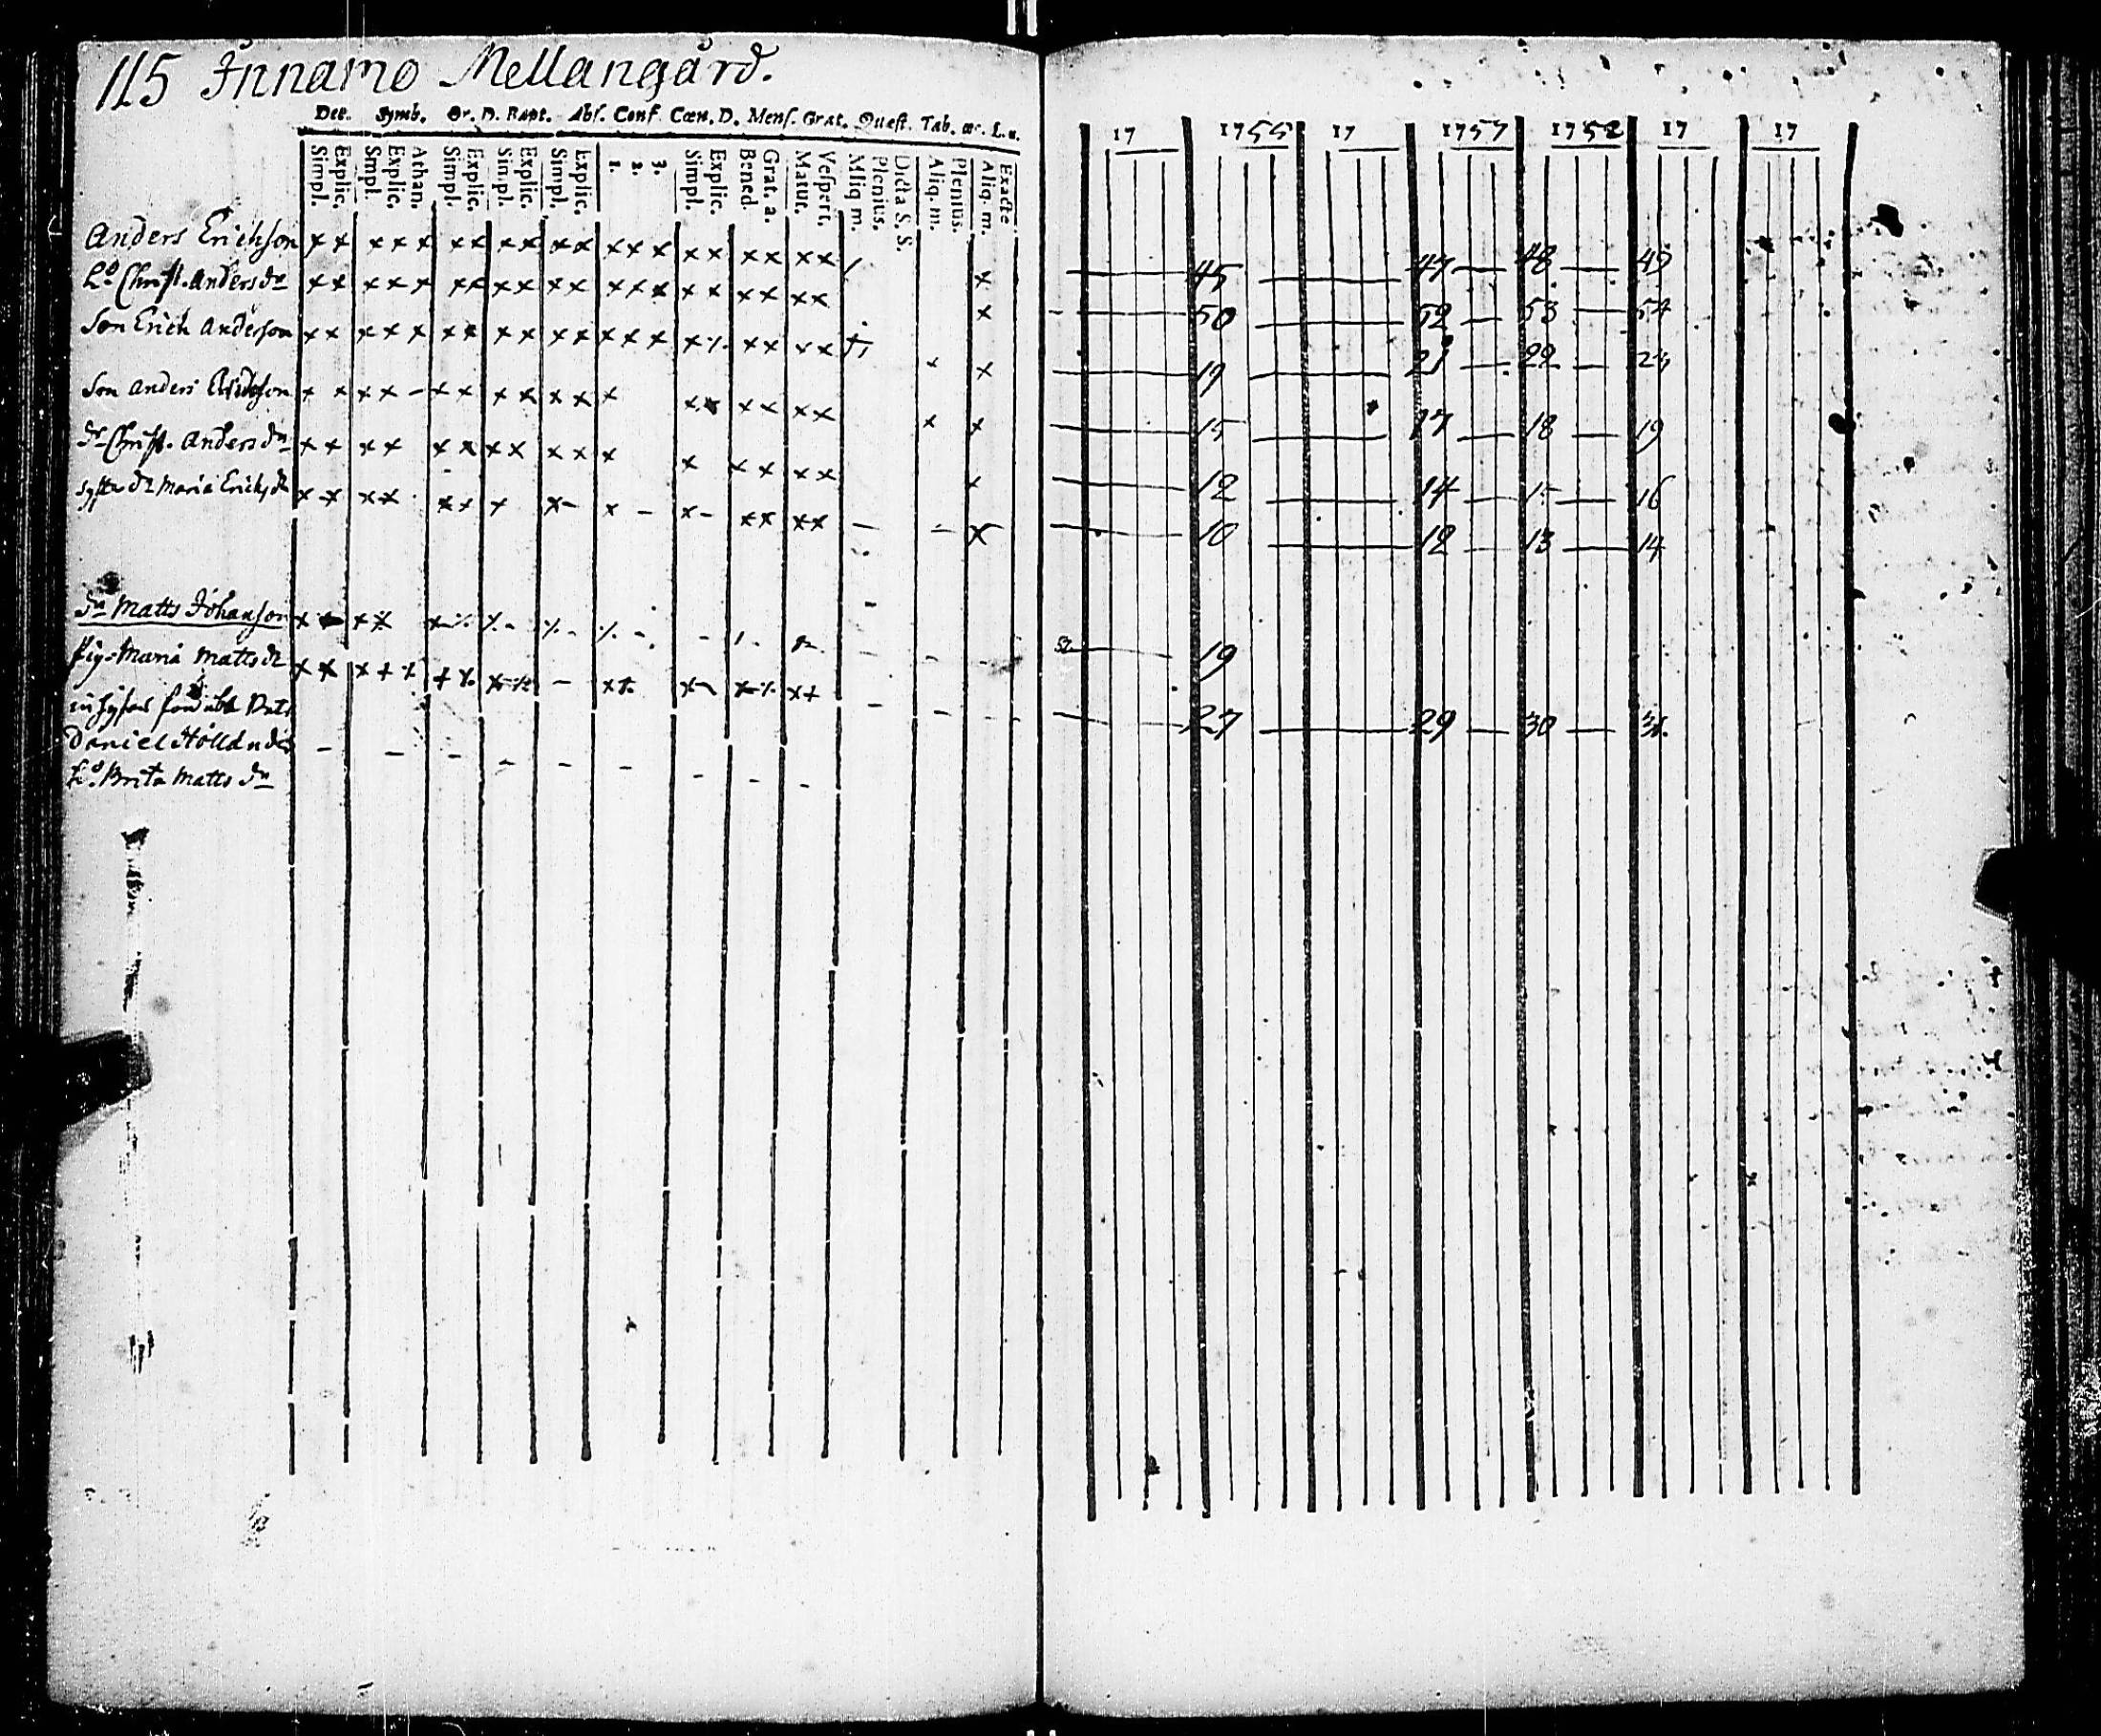 115 Innamo Mellangård.
Dec. Symb. Or. D. Bapt. Abs. Conf. Cœn. D. Mens. Grat. Quæst. Tab. œc. L. u.
Simpl. Explic. Smpl. Explic. Athan. Simpl. Explic. Simpl. Explic. Simpl. Explic. 1. 2. 3. Simpl. Explic. Bened. Grat. a. Matur. Vespert. Aliq m. Plenius. Dicta S. S. Aliq. m. Plenius. Aliq. m. Exacte
17 1755 17 1757 1758 17 17
Anders Erichson x x x x x x x x x x x x x x x x x x x x 45 47 48 49
h:o Christ. Anders dr x x x x x x x x x x x x x x x x x x x x 50 52 53 54
Son Erich Anderson x x x x x x x x x x x x x x x x x x x x 19 21 22 23
Son Anders x x x x - x x x x x x x x x x x x x x 15 17 18 19
dr Christ. Anders dr x x x x x x x x x x x x x x x x x 12 14 15 16
Maria Erichs dr x x x x x x x x - x - x - x x x x - - x 10 12 13 14
Matts Johanson 19
pig. Maria Matts dr 27 29 30 31.
Daniel - - - - - - - - -
h:o Brita Matts dr